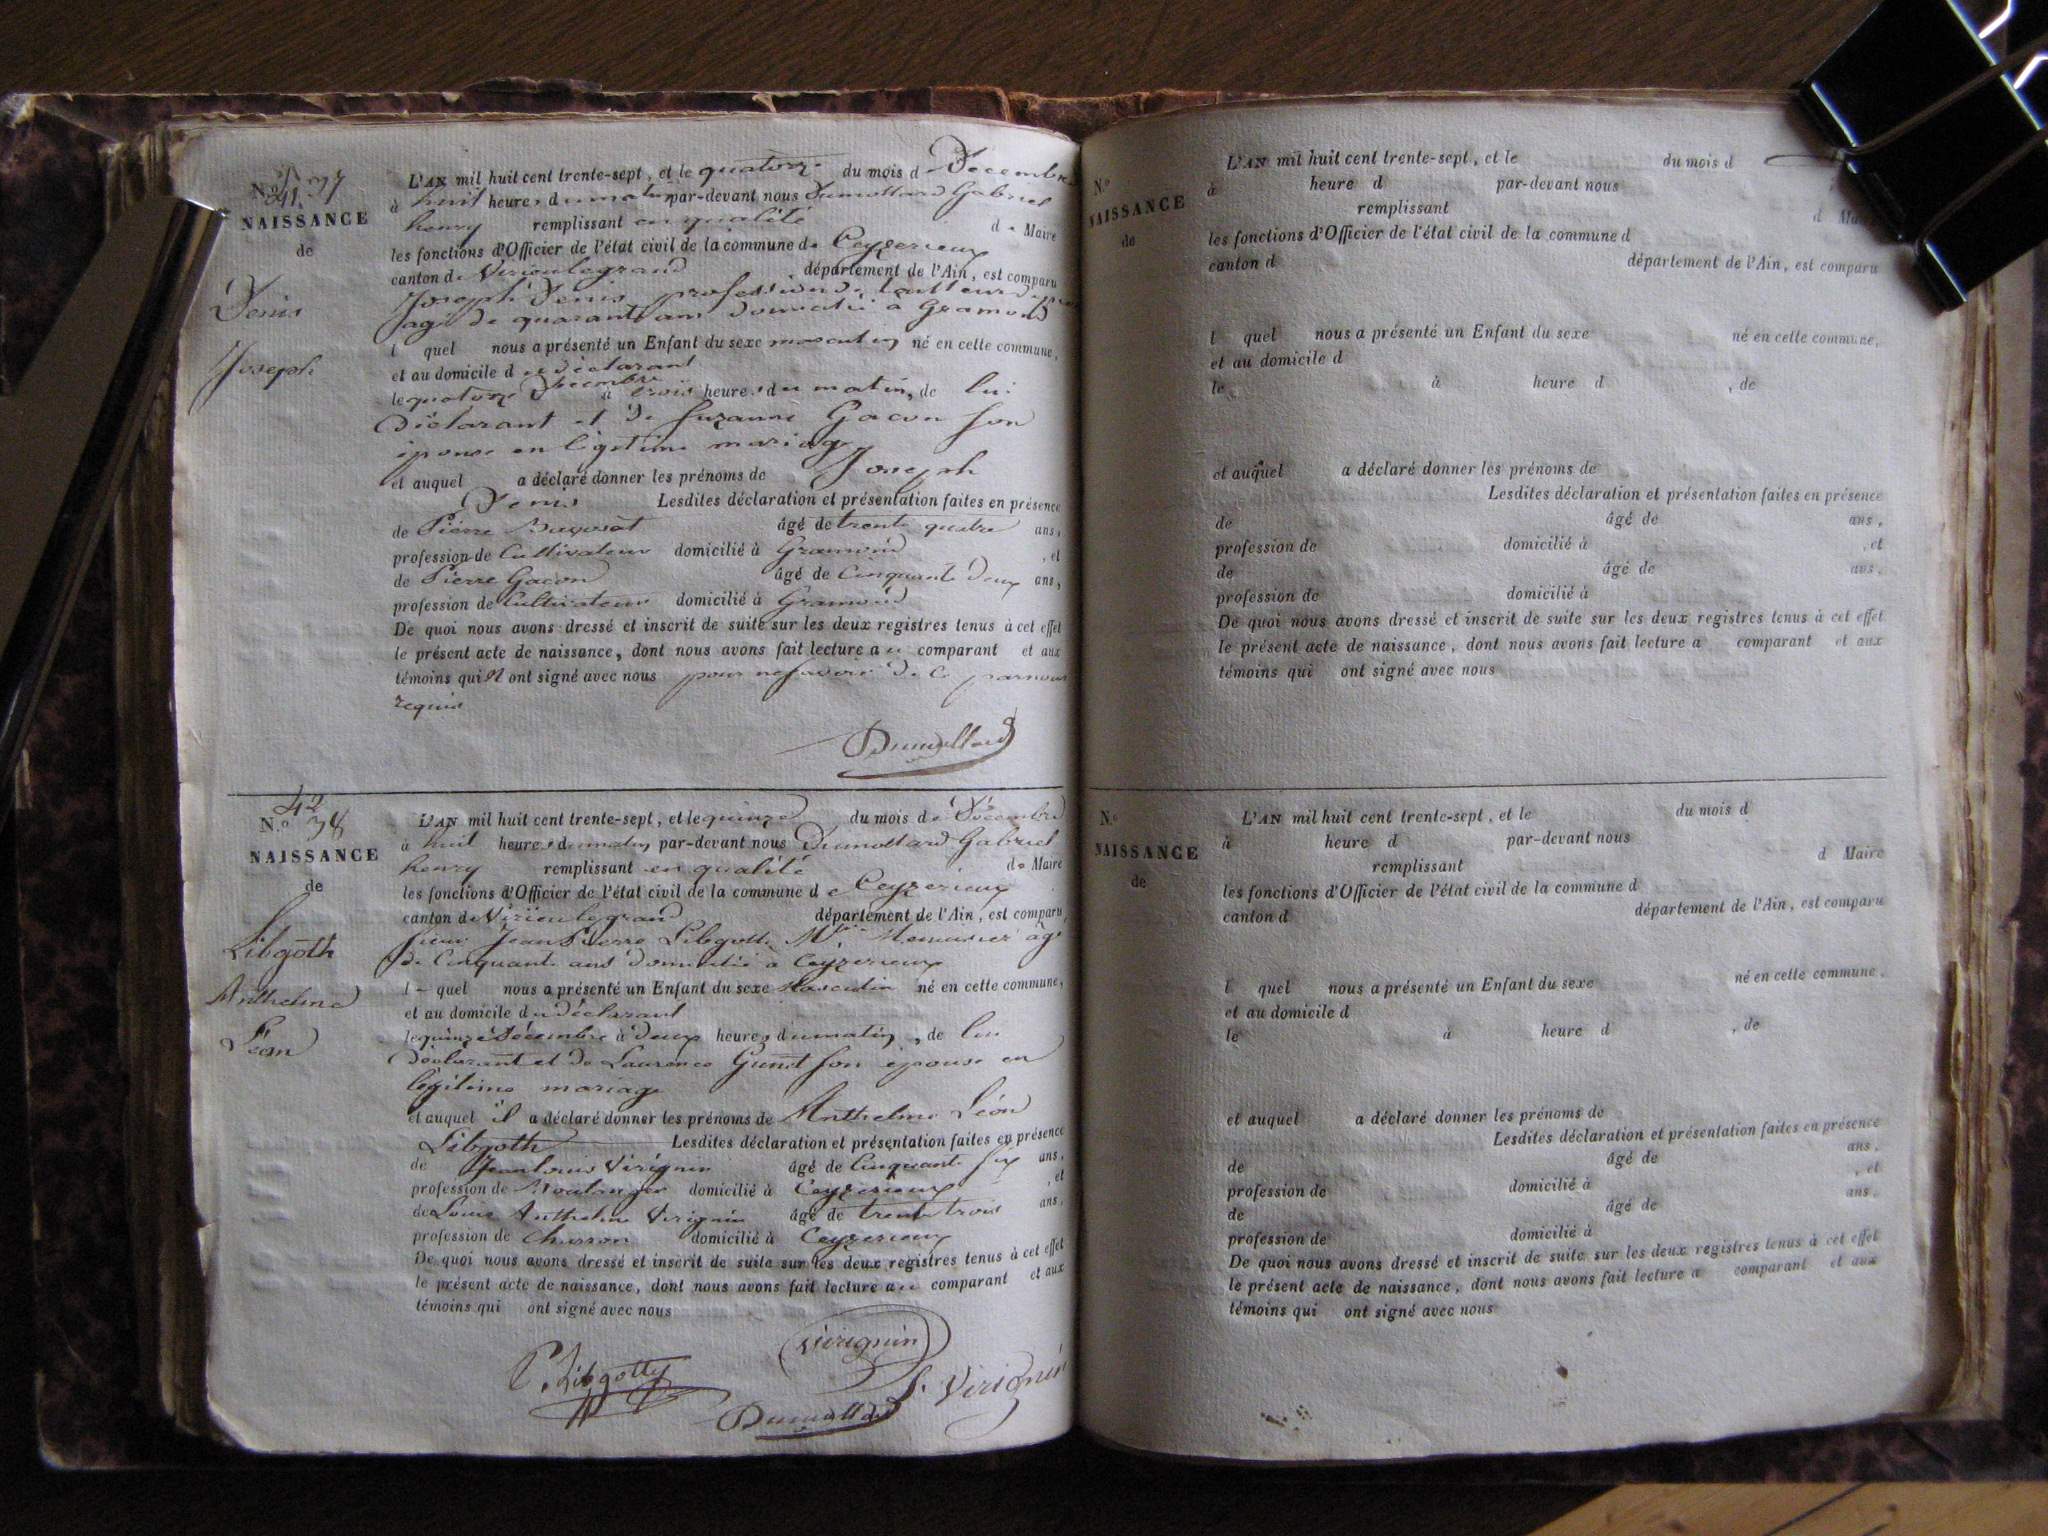 N.º 41. 37
NAISSANCE
de
Denis
Joseph
L'AN mil huit cent trente-sept, et le quatorze du mois de Décembre
à huit heures du matin par-devant nous Dumollard Gabriel
henry remplissant en qualité de Maire
les fonctions d'Officier de l'état civil de la commune de Ceyzerieux
canton de Virieulegrand département de l'Ain, est comparu
Joseph Denis profession de
agé de quarante ans domicilié à Gramond
l quel nous a présenté un Enfant du sexe masculin né en cette commune,
et au domicile du déclarant
le quatorze Décembre à trois heures du matin, de lui
déclarant et de Suzanne Gacon son
épouse en légitime mariage
et auquel a déclaré donner les prénoms de Joseph
Denis Lesdites déclaration et présentation faites en présence
de Pierre âgé de trente quatre ans,
profession de Cultivateur domicilié à Gramond , et
de Pierre Gacon âgé de Cinquante deux ans,
profession de Cultivateur domicilié à Gramond
De quoi nous avons dressé et inscrit de suite sur les deux registres tenus à cet effet
le présent acte de naissance, dont nous avons fait lecture au comparant et aux
témoins qui n ont signé avec nous pour ne savoir de ce par nous
requis
Dumollard
N.º 42 38
NAISSANCE
de
Libgoth
Anthelme
Léon
L'AN mil huit cent trente-sept, et le quinze du mois de Décembre
à huit heures du matin par-devant nous Dumollard Gabriel
henry remplissant en qualité de Maire
les fonctions d'Officier de l'état civil de la commune de Ceyzerieux
canton de Virieulegrand département de l'Ain, est comparu
sieur Jean Pierre Libgoth Menuisier âgé
de Cinquante ans domicilié à Ceyzerieux
l – quel nous a présenté un Enfant du sexe Masculin né en cette commune,
et au domicile du déclarant
le quinze Décembre à deux heures du matin, de lui
déclarant et de Laurence son épouse en
légitime mariage
et auquel il a déclaré donner les prénoms de Anthelme Léon
Libgoth Lesdites déclaration et présentation faites en présence
de Jean Louis Virignin âgé de Cinquante six ans,
profession de Boulanger domicilié à Ceyzerieux , et
de Louis Anthelme Virignin âgé de trente trois ans,
profession de Charron domicilié à Ceyzerieux
De quoi nous avons dressé et inscrit de suite sur les deux registres tenus à cet effet
le présent acte de naissance, dont nous avons fait lecture au comparant et aux
témoins qui ont signé avec nous
Virignin
P. Libgotty
L. Virignin
Dumollard
N.º
NAISSANCE
de
L'AN mil huit cent trente-sept, et le du mois d
à heure d par-devant nous
remplissant d Maire
les fonctions d'Officier de l'état civil de la commune d
canton d département de l'Ain, est comparu
l quel nous a présenté un Enfant du sexe né en cette commune,
et au domicile d
le à heure d , de
et auquel a déclaré donner les prénoms de
Lesdites déclaration et présentation faites en présence
de âgé de ans,
profession de domicilié à , et
de âgé de ans,
profession de domicilié à
De quoi nous avons dressé et inscrit de suite sur les deux registres tenus à cet effet
le présent acte de naissance, dont nous avons fait lecture a comparant et aux
témoins qui ont signé avec nous
N.º
NAISSANCE
de
L'AN mil huit cent trente-sept, et le du mois d
à heure d par-devant nous
remplissant d Maire
les fonctions d'Officier de l'état civil de la commune d
canton d département de l'Ain, est comparu
l quel nous a présenté un Enfant du sexe né en cette commune,
et au domicile d
le à heure d , de
et auquel a déclaré donner les prénoms de
Lesdites déclaration et présentation faites en présence
de âgé de ans,
profession de domicilié à , et
de âgé de ans,
profession de domicilié à
De quoi nous avons dressé et inscrit de suite sur les deux registres tenus à cet effet
le présent acte de naissance, dont nous avons fait lecture a comparant et aux
témoins qui ont signé avec nous